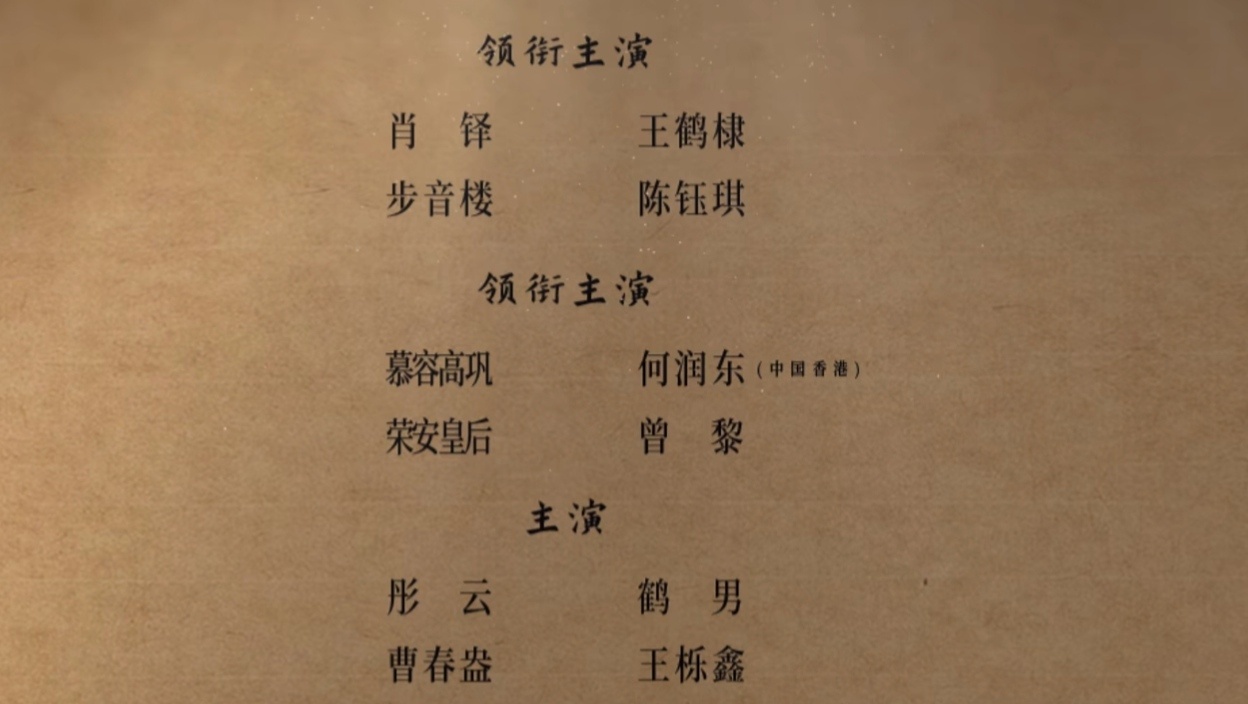 领衔主演
肖铎 王鹤棣
步音楼 陈钰琪
领衔主演
慕容高巩 何润东（中国香港）
荣安皇后 曾黎
主演
彤云 鹤男
曹春盎 王栎鑫